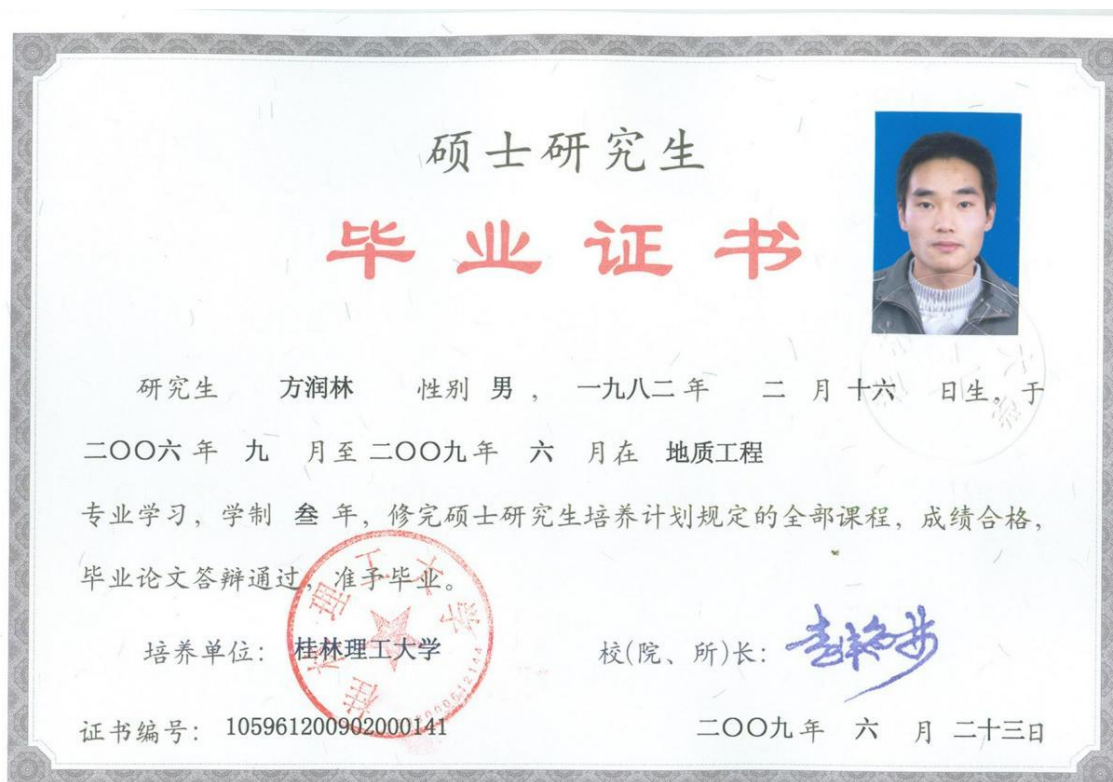 硕士研究生
毕业证书
研究生 方润林 性别 男 ， 一九八二 年 二 月 十六 日生。于
二〇〇六 年 九 月至 二〇〇九 年 六 月在 地质工程
专业学习，学制 叁 年，修完硕士研究生培养计划规定的全部课程，成绩合格，
毕业论文答辩通过，准予毕业。
桂林理工大学
培养单位： 桂林理工大学 校(院、所)长：
证书编号： 105961200902000141 二〇〇九 年 六 月 二十三日